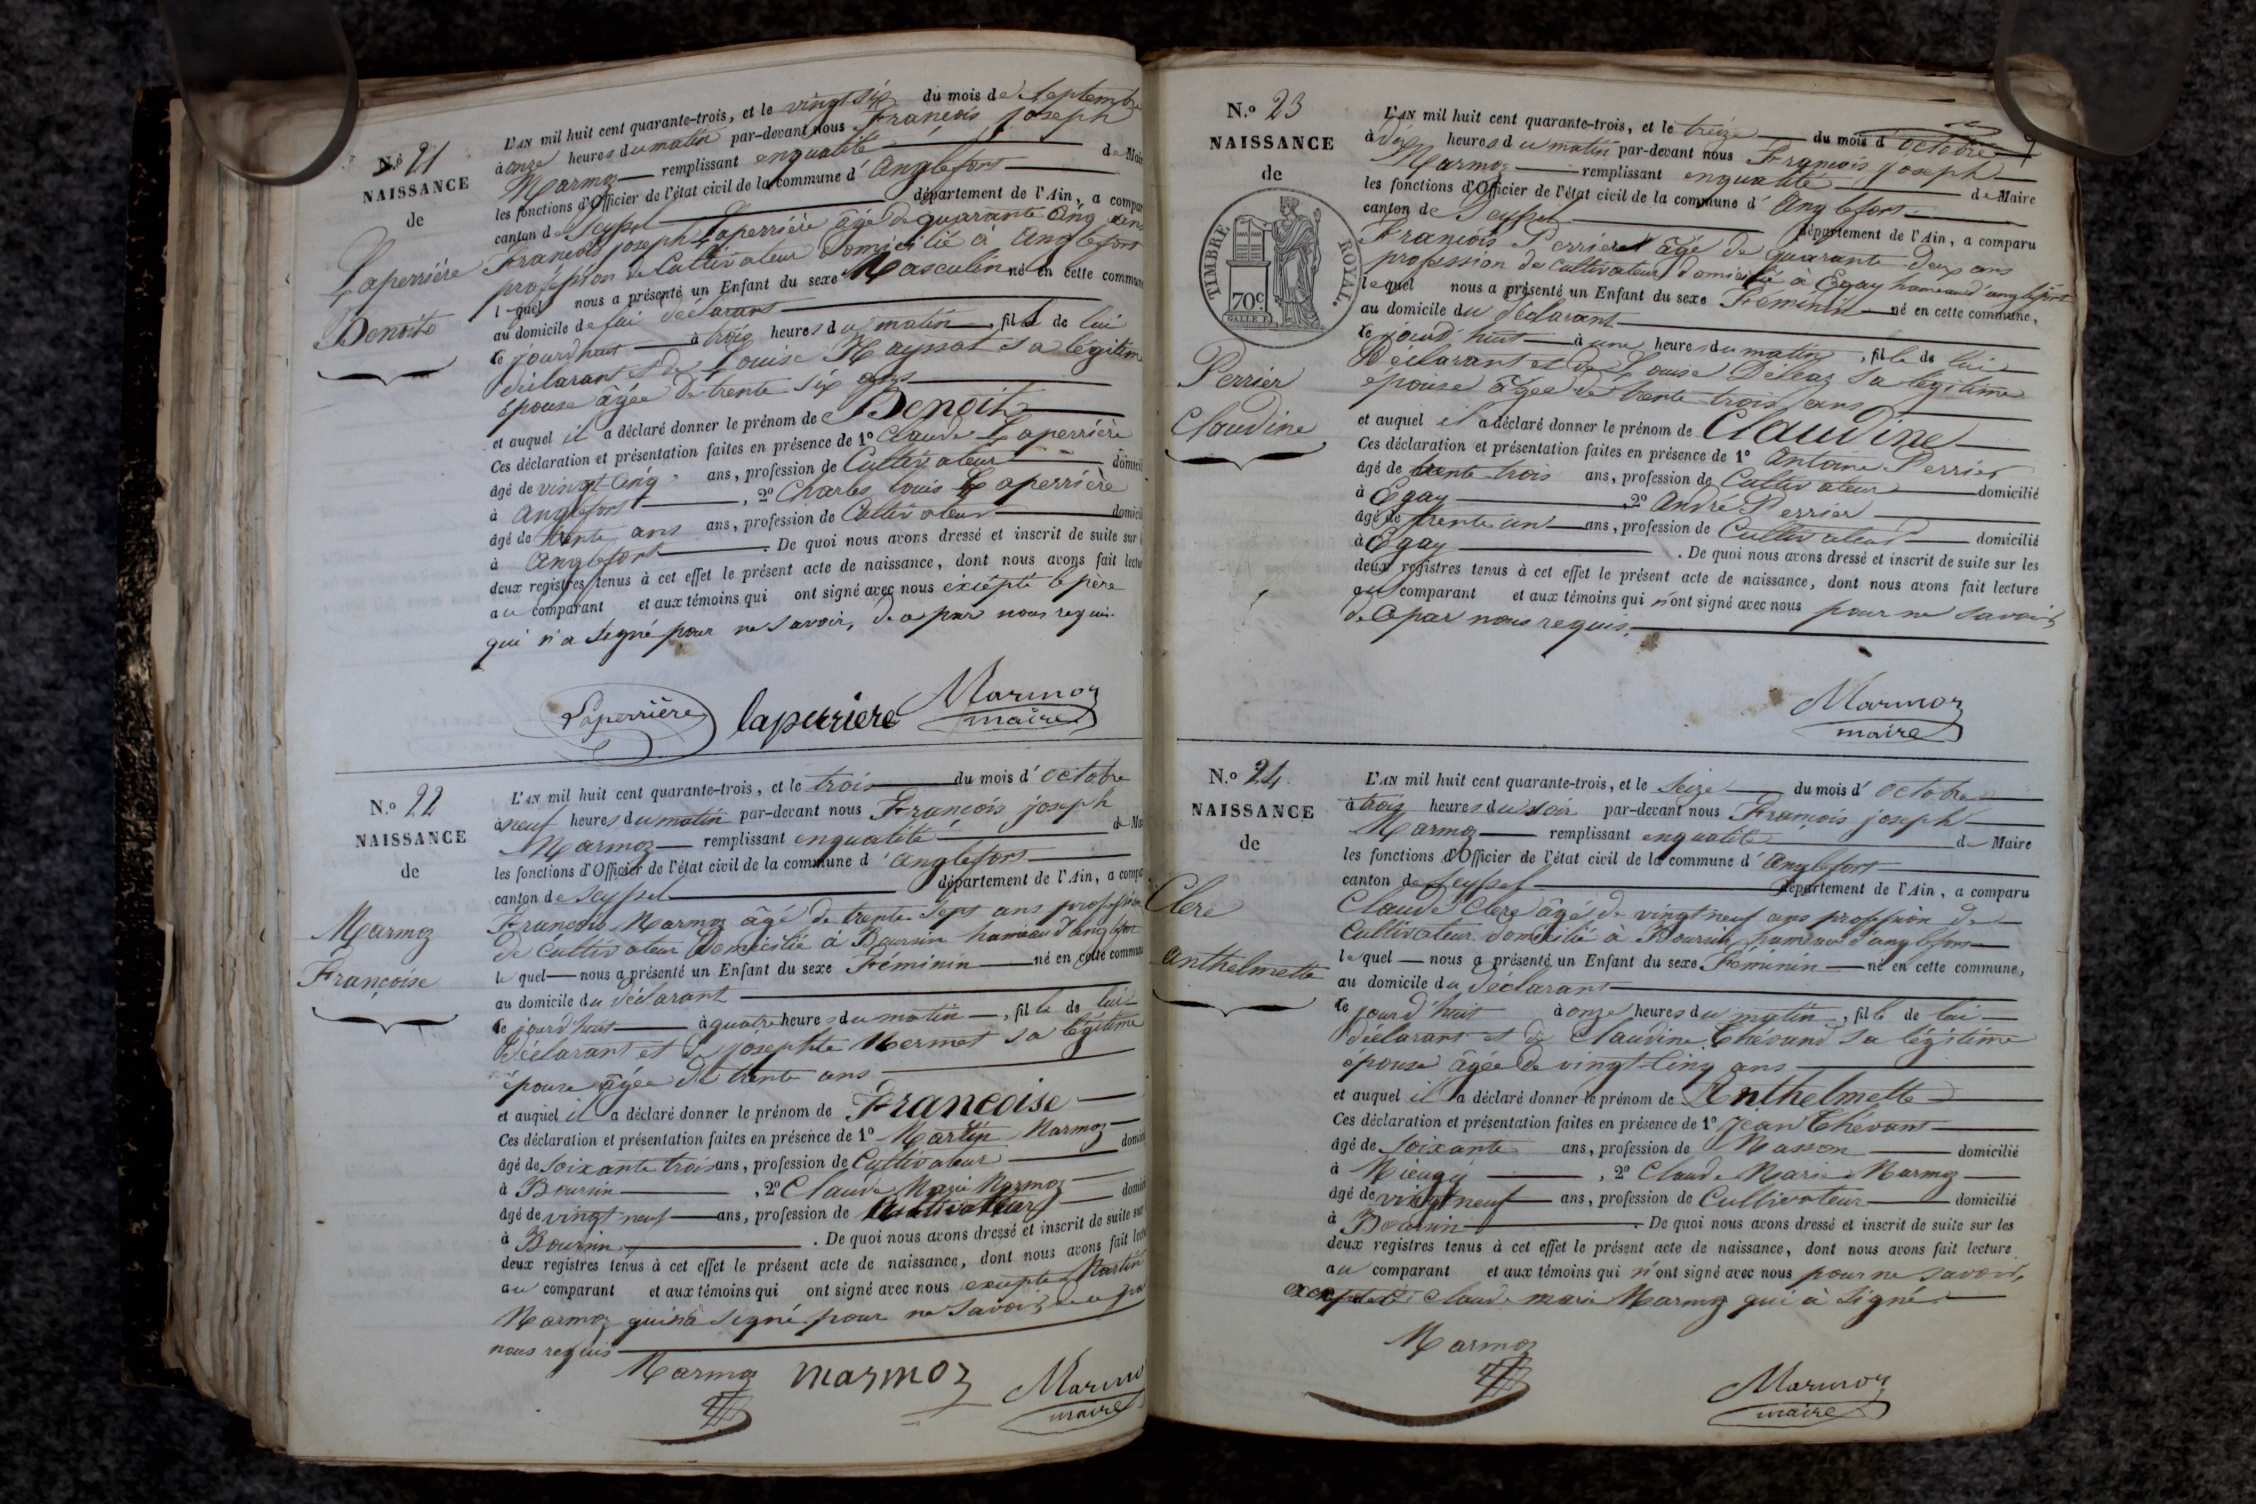 N.º 21
NAISSANCE
de
Laperrière
Benoit
L'AN mil huit cent quarante-trois, et le vingt six du mois de Septembre
à onze heures du matin par-devant nous François joseph
Marmoz remplissant en qualité de Mair
les fonctions d'Officier de l'état civil de la commune d'Anglefort
canton de Seyssel département de l'Ain, a compar
François joseph Laperrière âgé de quarante cinq ans
profession de Cultivateur Domicilié à Anglefort
lequel nous a présenté un Enfant du sexe Masculin né en cette commune
au domicile de lui déclarant
ce jourd'huit à trois heures du matin, fils de lui
déclarant et de Louise Mayssat sa légitime
épouse âgée de trente six ans
et auquel il a déclaré donner le prénom de Benoit
Ces déclaration et présentation faites en présence de 1º Claude Laperrière
âgé de vingt cinq ans, profession de Cultivateur domicil
à Anglefort, 2º Charles louis Laperrière
âgé de trente ans ans, profession de Cultivateur domicil
à Anglefort. De quoi nous avons dressé et inscrit de suite sur
deux registres tenus à cet effet le présent acte de naissance, dont nous avons fait lectu
au comparant et aux témoins qui ont signé avec nous excépté le père
qui n'a signé pour ne savoir, de ce par nous requi.
Laperrière laperriere Marmoz
maire
N.º 22
NAISSANCE
de
Marmoz
Françoise
L'AN mil huit cent quarante-trois, et le trois du mois d'octobre
à neuf heures du matin par-devant nous François joseph
Marmoz remplissant en qualité de Mai
les fonctions d'Officier de l'état civil de la commune d'Anglefort
canton de Seyssel département de l'Ain, a compa
François Marmoz âgé de trente sept ans profession
de cultivateur domicilié à Boursin hameau d'anglefort
lequel nous a présenté un Enfant du sexe Féminin né en cette commun
au domicile du déclarant
ce jourd'huit à quatre heures du matin, fille de lui
déclarant et de josephte Mermet sa légitime
épouse âgée de trente ans
et auquel il a déclaré donner le prénom de Françoise
Ces déclaration et présentation faites en présence de 1º Martin Marmoz
âgé de soixante trois ans, profession de Cultivateur domici
à Boursin, 2º Claude Marie Marmoz
âgé de vingt neuf ans, profession de Cultivateur domici
à Boursin. De quoi nous avons dressé et inscrit de suite sur
deux registres tenus à cet effet le présent acte de naissance, dont nous avons fait lectu
au comparant et aux témoins qui ont signé avec nous excepté Martin
Marmoz qui n'a signé pour ne savoir de ce par
nous requis
Marmoz marmoz Marmo
maire
N.º 23
NAISSANCE
de
TIMBRE ROYAL.
70c
Perrier
Claudine
L'AN mil huit cent quarante-trois, et le treize du mois d'octobre
à dix heures du matin par-devant nous François joseph
Marmoz remplissant en qualité de Maire
les fonctions d'Officier de l'état civil de la commune d'Anglefort
canton de Seyssel département de l'Ain, a comparu
François Perrier âgé de quarante deux ans
profession de cultivateur domicilié à Egay hameau d'anglefort
lequel nous a présenté un Enfant du sexe Féminin né en cette commune,
au domicile du déclarant
ce jourd'huit à une heures du matin, fille de lui
Déclarant et de Louise Déléaz sa légitime
épouse âgée de trente trois ans
et auquel il a déclaré donner le prénom de Claudine
Ces déclaration et présentation faites en présence de 1º Antoine Perrier
âgé de trente trois ans, profession de Cultivateur domicilié
à Egay, 2º André Perrier
âgé de trente un ans, profession de Cultivateur domicilié
à Egay. De quoi nous avons dressé et inscrit de suite sur les
deux registres tenus à cet effet le présent acte de naissance, dont nous avons fait lecture
au comparant et aux témoins qui n'ont signé avec nous pour ne savoir
de ce par nous requis.
Marmoz
maire
N.º 24
NAISSANCE
de
Clerc
anthelmette
L'AN mil huit cent quarante-trois, et le Seize du mois d'octobre
à trois heures du soir par-devant nous François joseph
Marmoz remplissant en qualité de Maire
les fonctions d'Officier de l'état civil de la commune d'Anglefort
canton de Seyssel département de l'Ain, a comparu
Claude Clerc âgé de vingt neuf ans profession de
Cultivateur domicilié à Boursin hameau d'anglefort
lequel nous a présenté un Enfant du sexe Féminin né en cette commune,
au domicile du déclarant
ce jourd'huit à onze heures du matin, fille de lui
déclarant et de Claudine Thévand sa légitime
épouse âgée de vingt-Cinq ans
et auquel il a déclaré donner le prénom de Anthelmette
Ces déclaration et présentation faites en présence de 1º Jean Thévant
âgé de soixante ans, profession de Masson domicilié
à Mieugy, 2º Claude Marie Marmoz
âgé de vingt neuf ans, profession de Cultivateur domicilié
à Boursin. De quoi nous avons dressé et inscrit de suite sur les
deux registres tenus à cet effet le présent acte de naissance, dont nous avons fait lecture
au comparant et aux témoins qui n'ont signé avec nous pour ne savoir,
excepté Claude marie Marmoz qui à signé
Marmoz
Marmoz
maire